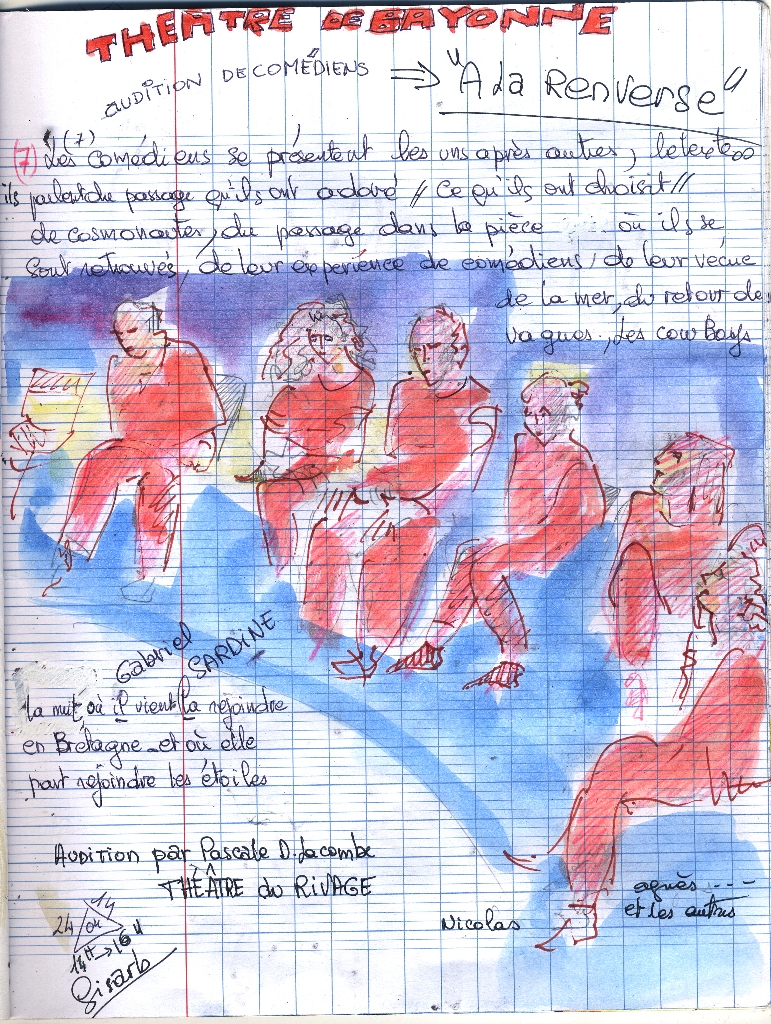 THÉÂTRE DE BAYONNE
AUDITION DE COMÉDIENS ⇒ "A la Renverse"
(7)
7 Les comédiens se présentent les uns après autres, le texte
ils parlent du passage qu'ils ont adoré // Ce qu'ils ont choisit //
de cosmonautes, du passage dans la pièce où ils se
sont retrouvés, de leur expérience de comédiens, de leur vécue
de la mer, du retour de
vagues, des cow Boys
Gabriel
SARDINE
la nuit où il vient la rejoindre
en Bretagne et où elle
part rejoindre les étoiles
Audition par Pascale D. Lacombe
THÉÂTRE du RIVAGE
24 ou 14
14H → 16H
Nicolas
agnès ---
et les autres